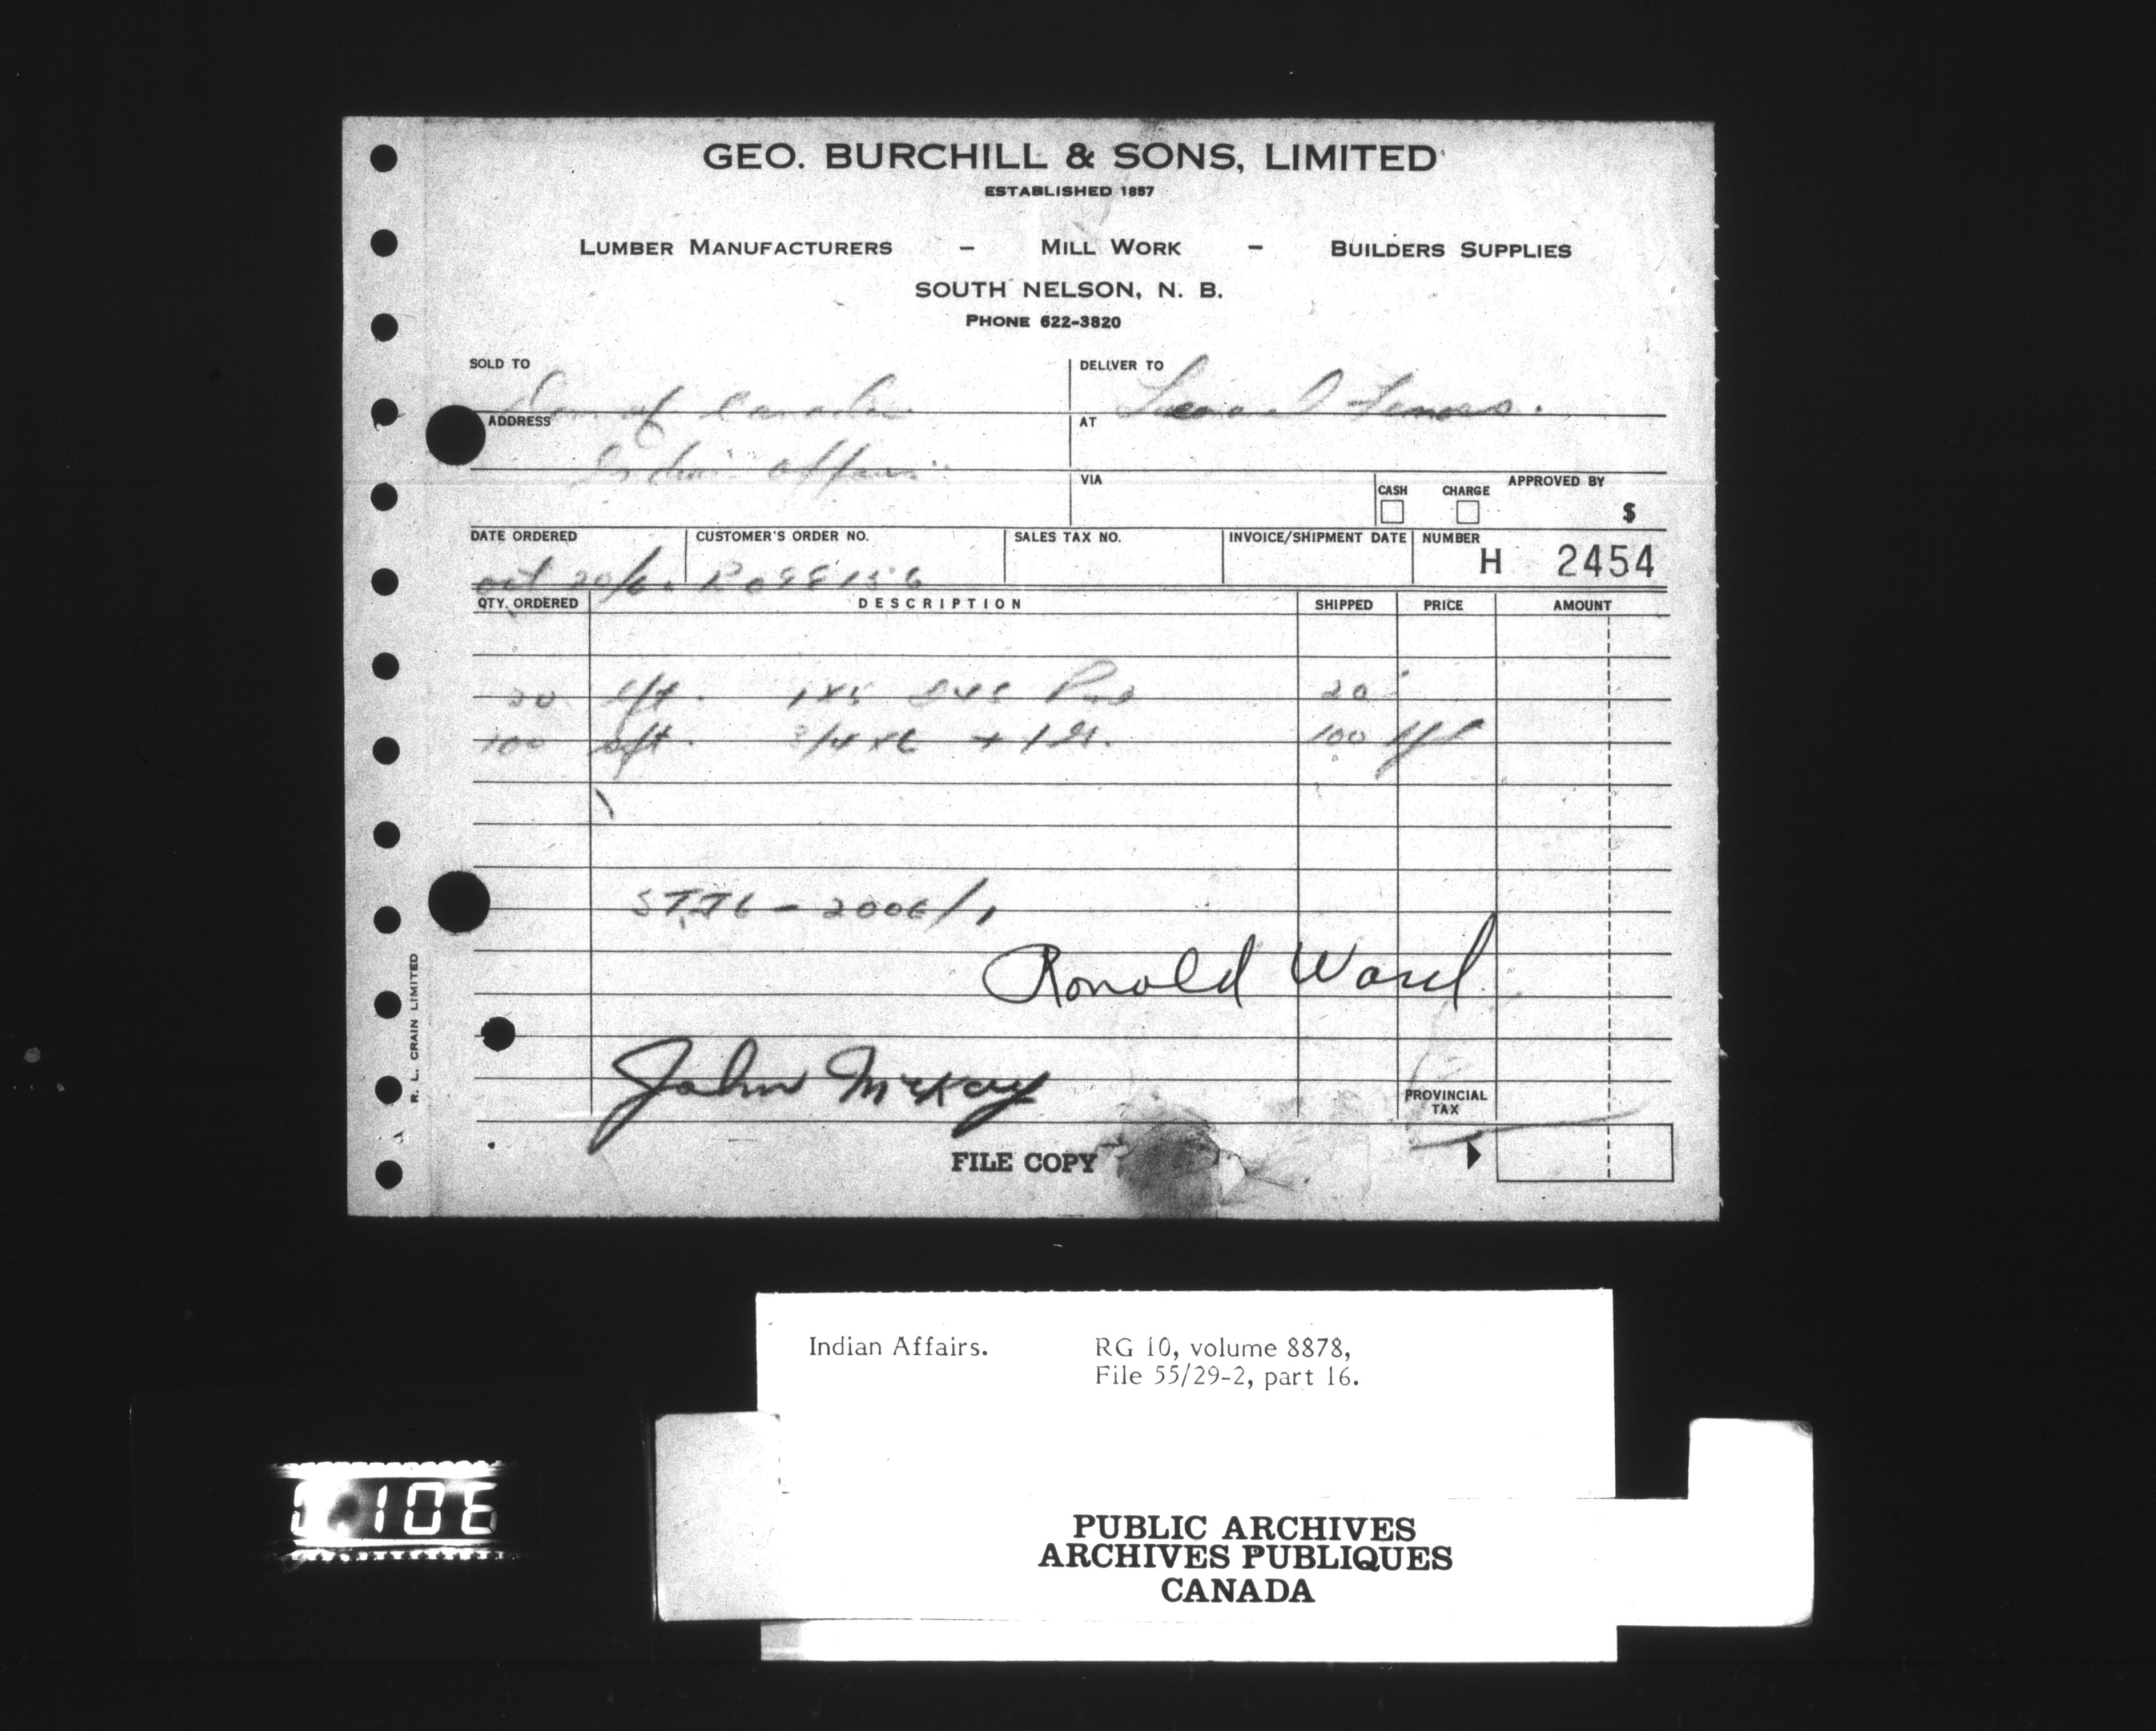 GEO. BURCHILL & SONS, LIMITED
ESTABLISHED 1857
LUMBER MANUFACTURERS - MILL WORK - BUILDERS SUPPLIES
SOUTH NELSON, N. B.
PHONE 622-3820
SOLD TO DELIVER TO
Dom of Canada
ADDRESS AT
Indian Affairs
VIA
CASH CHARGE APPROVED BY
$
DATE ORDERED CUSTOMER'S ORDER NO. SALES TAX NO. INVOICE/SHIPMENT DATE NUMBER
H 2454
Oct 20/6
QTY. ORDERED DESCRIPTION SHIPPED PRICE AMOUNT
20 lft. 1x5 20
100 3/4 x 6 100
Ronald Ward
John McKay
PROVINCIAL
TAX
FILE COPY
R. L. CRAIN LIMITED
Indian Affairs. RG 10, volume 8878,
File 55/29-2, part 16.
PUBLIC ARCHIVES
ARCHIVES PUBLIQUES
CANADA